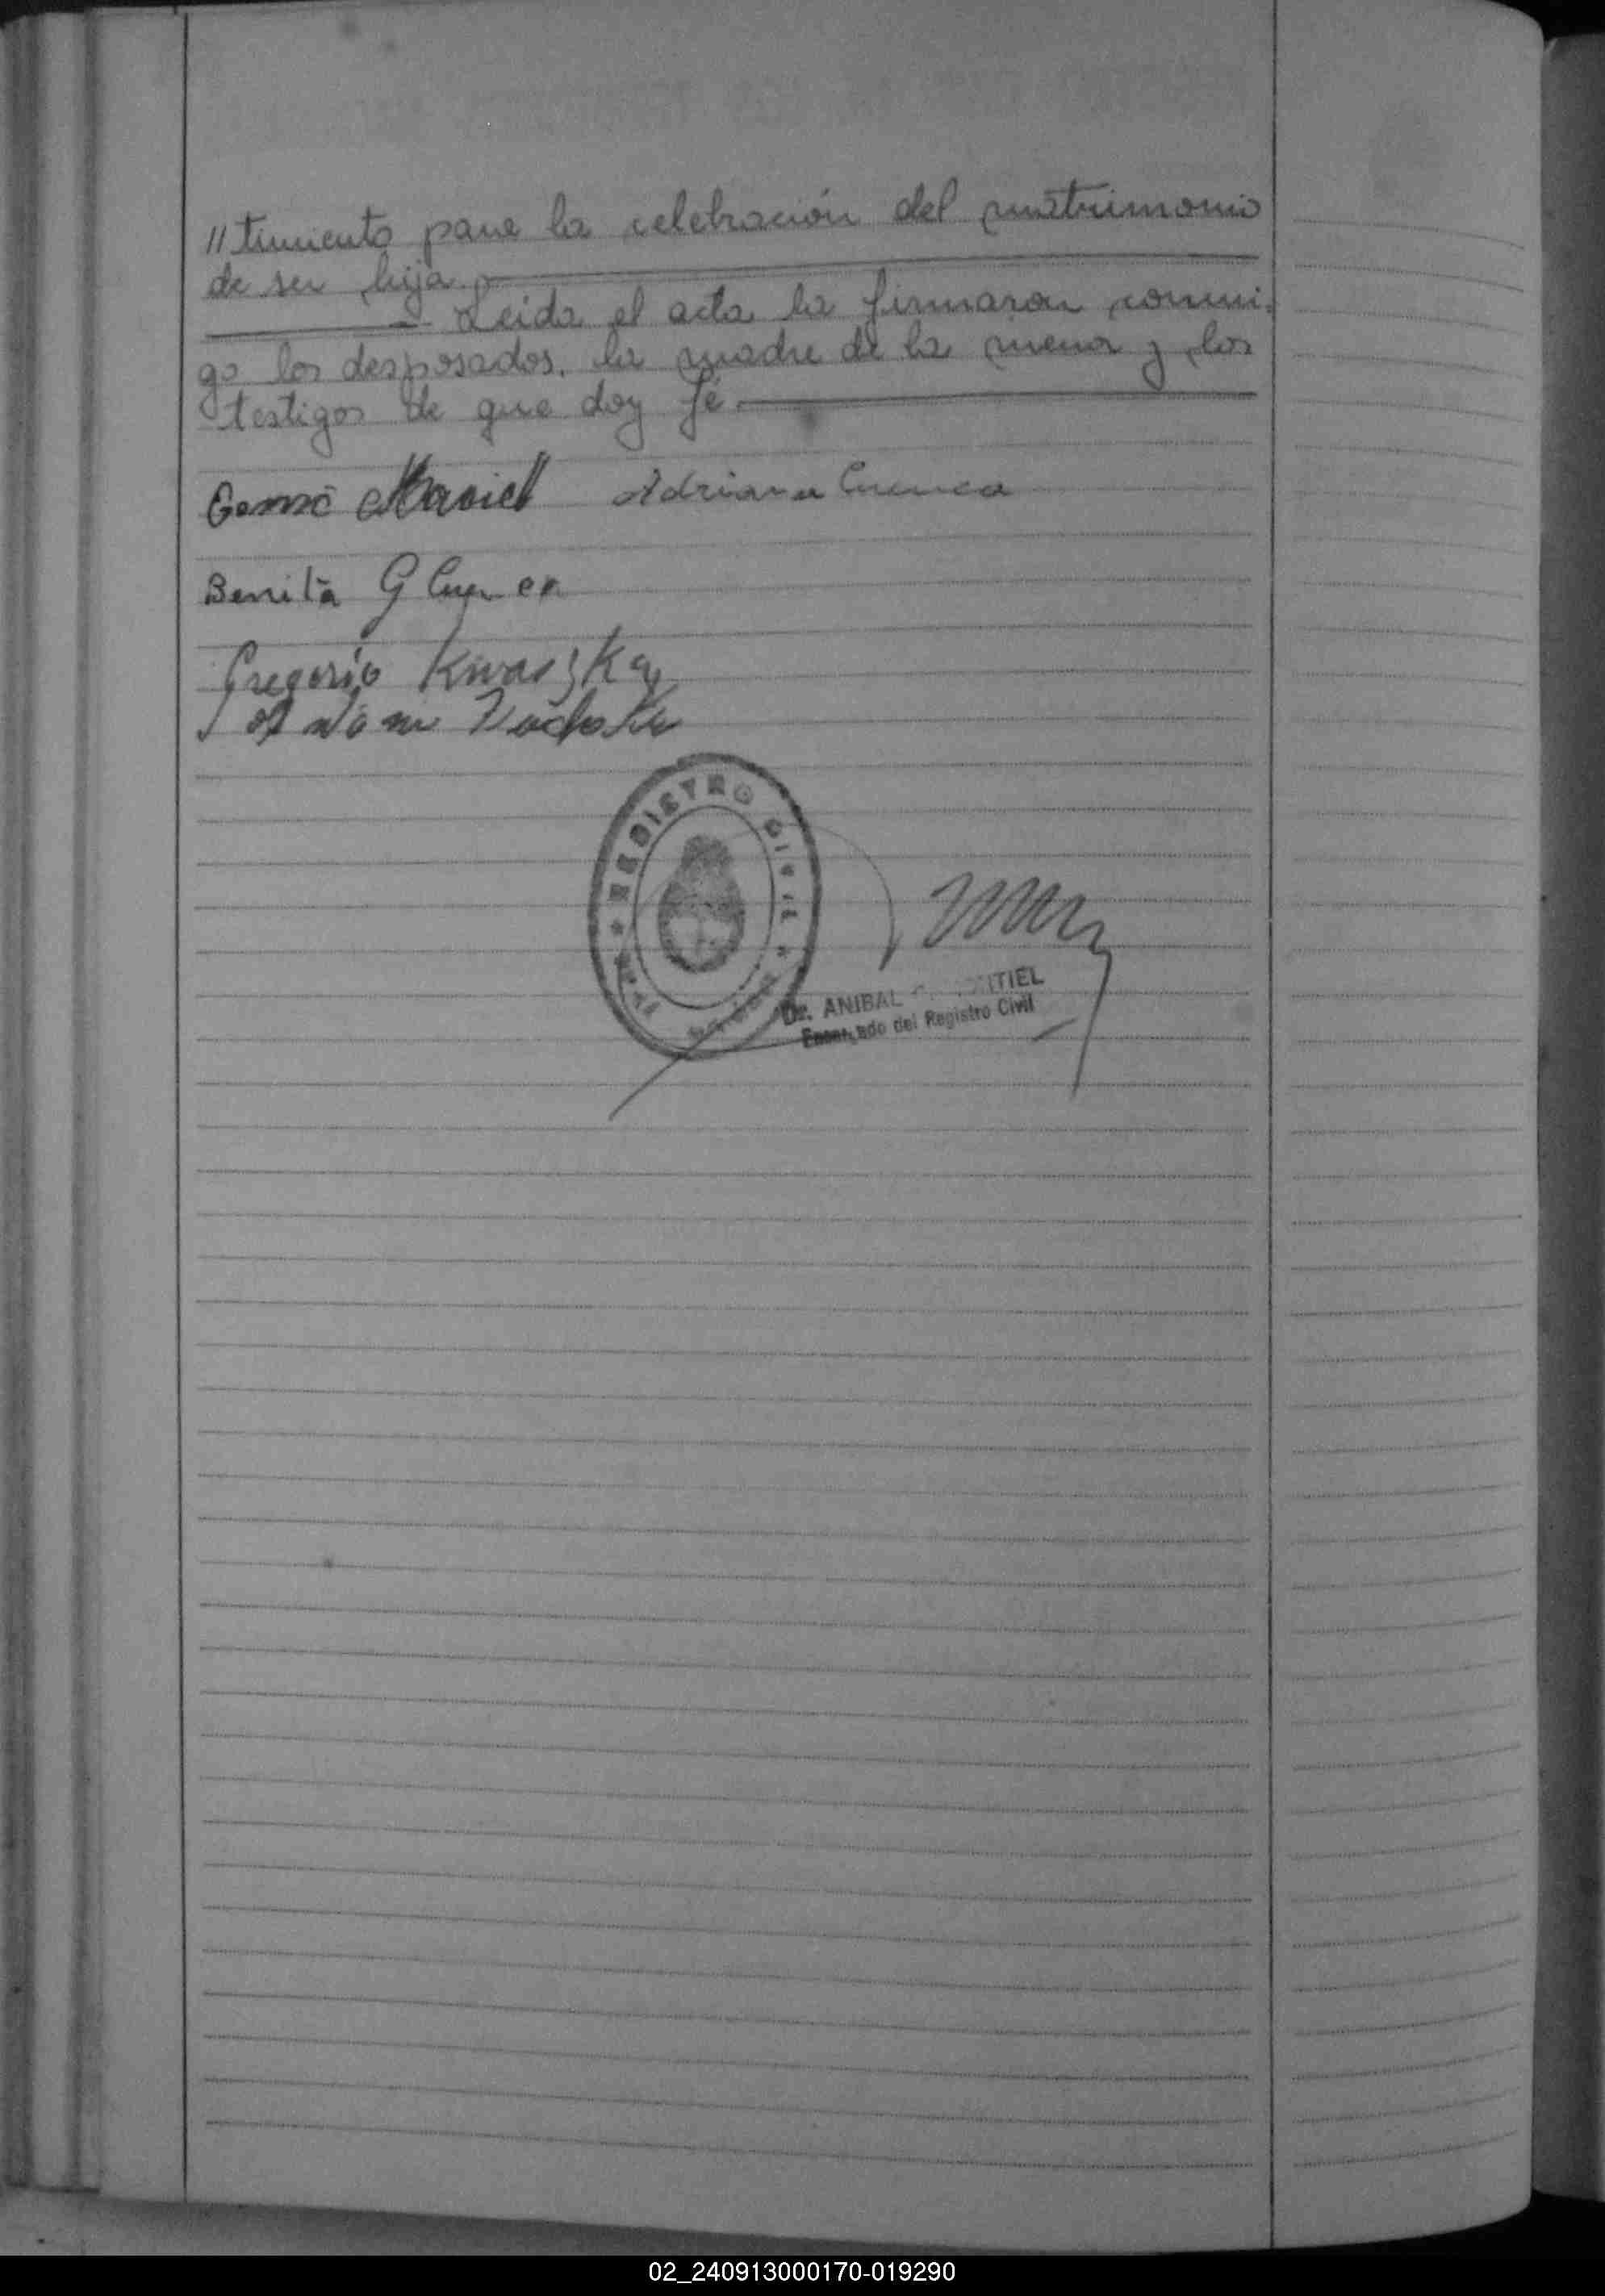 // timiento para la celebración del matrimonio
de su hija.
Leida el acta la firmaron conmi-
go los desposados, la madre de la menor y los
testigos de que doy fé.
Maciel Adriana Cuenca
Benita G
Gregorio
REGISTRO CIVIL
Dr. ANIBAL
Encargado del Registro Civil
02_240913000170-019290